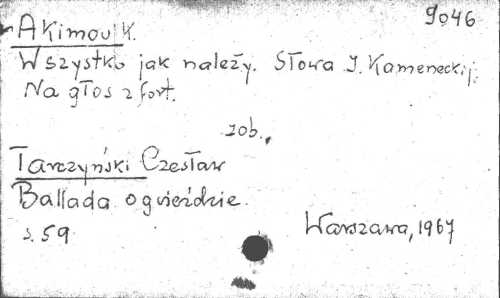 9046
Akimov K.
Wszystko jak należy. Słowa J. Kameneckij.
Na głos z fort.
zob.
Tarczyński Czesław
Ballada o gwieździe.
s. 59
Warszawa, 1967